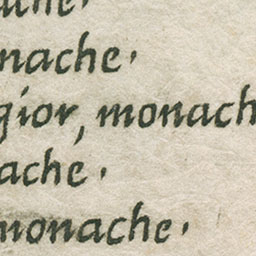 ache.
nache.
gior, monach
ache.
monache.